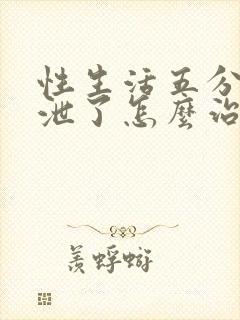 性生活五分
泄了怎麼治
羨蜉蝣